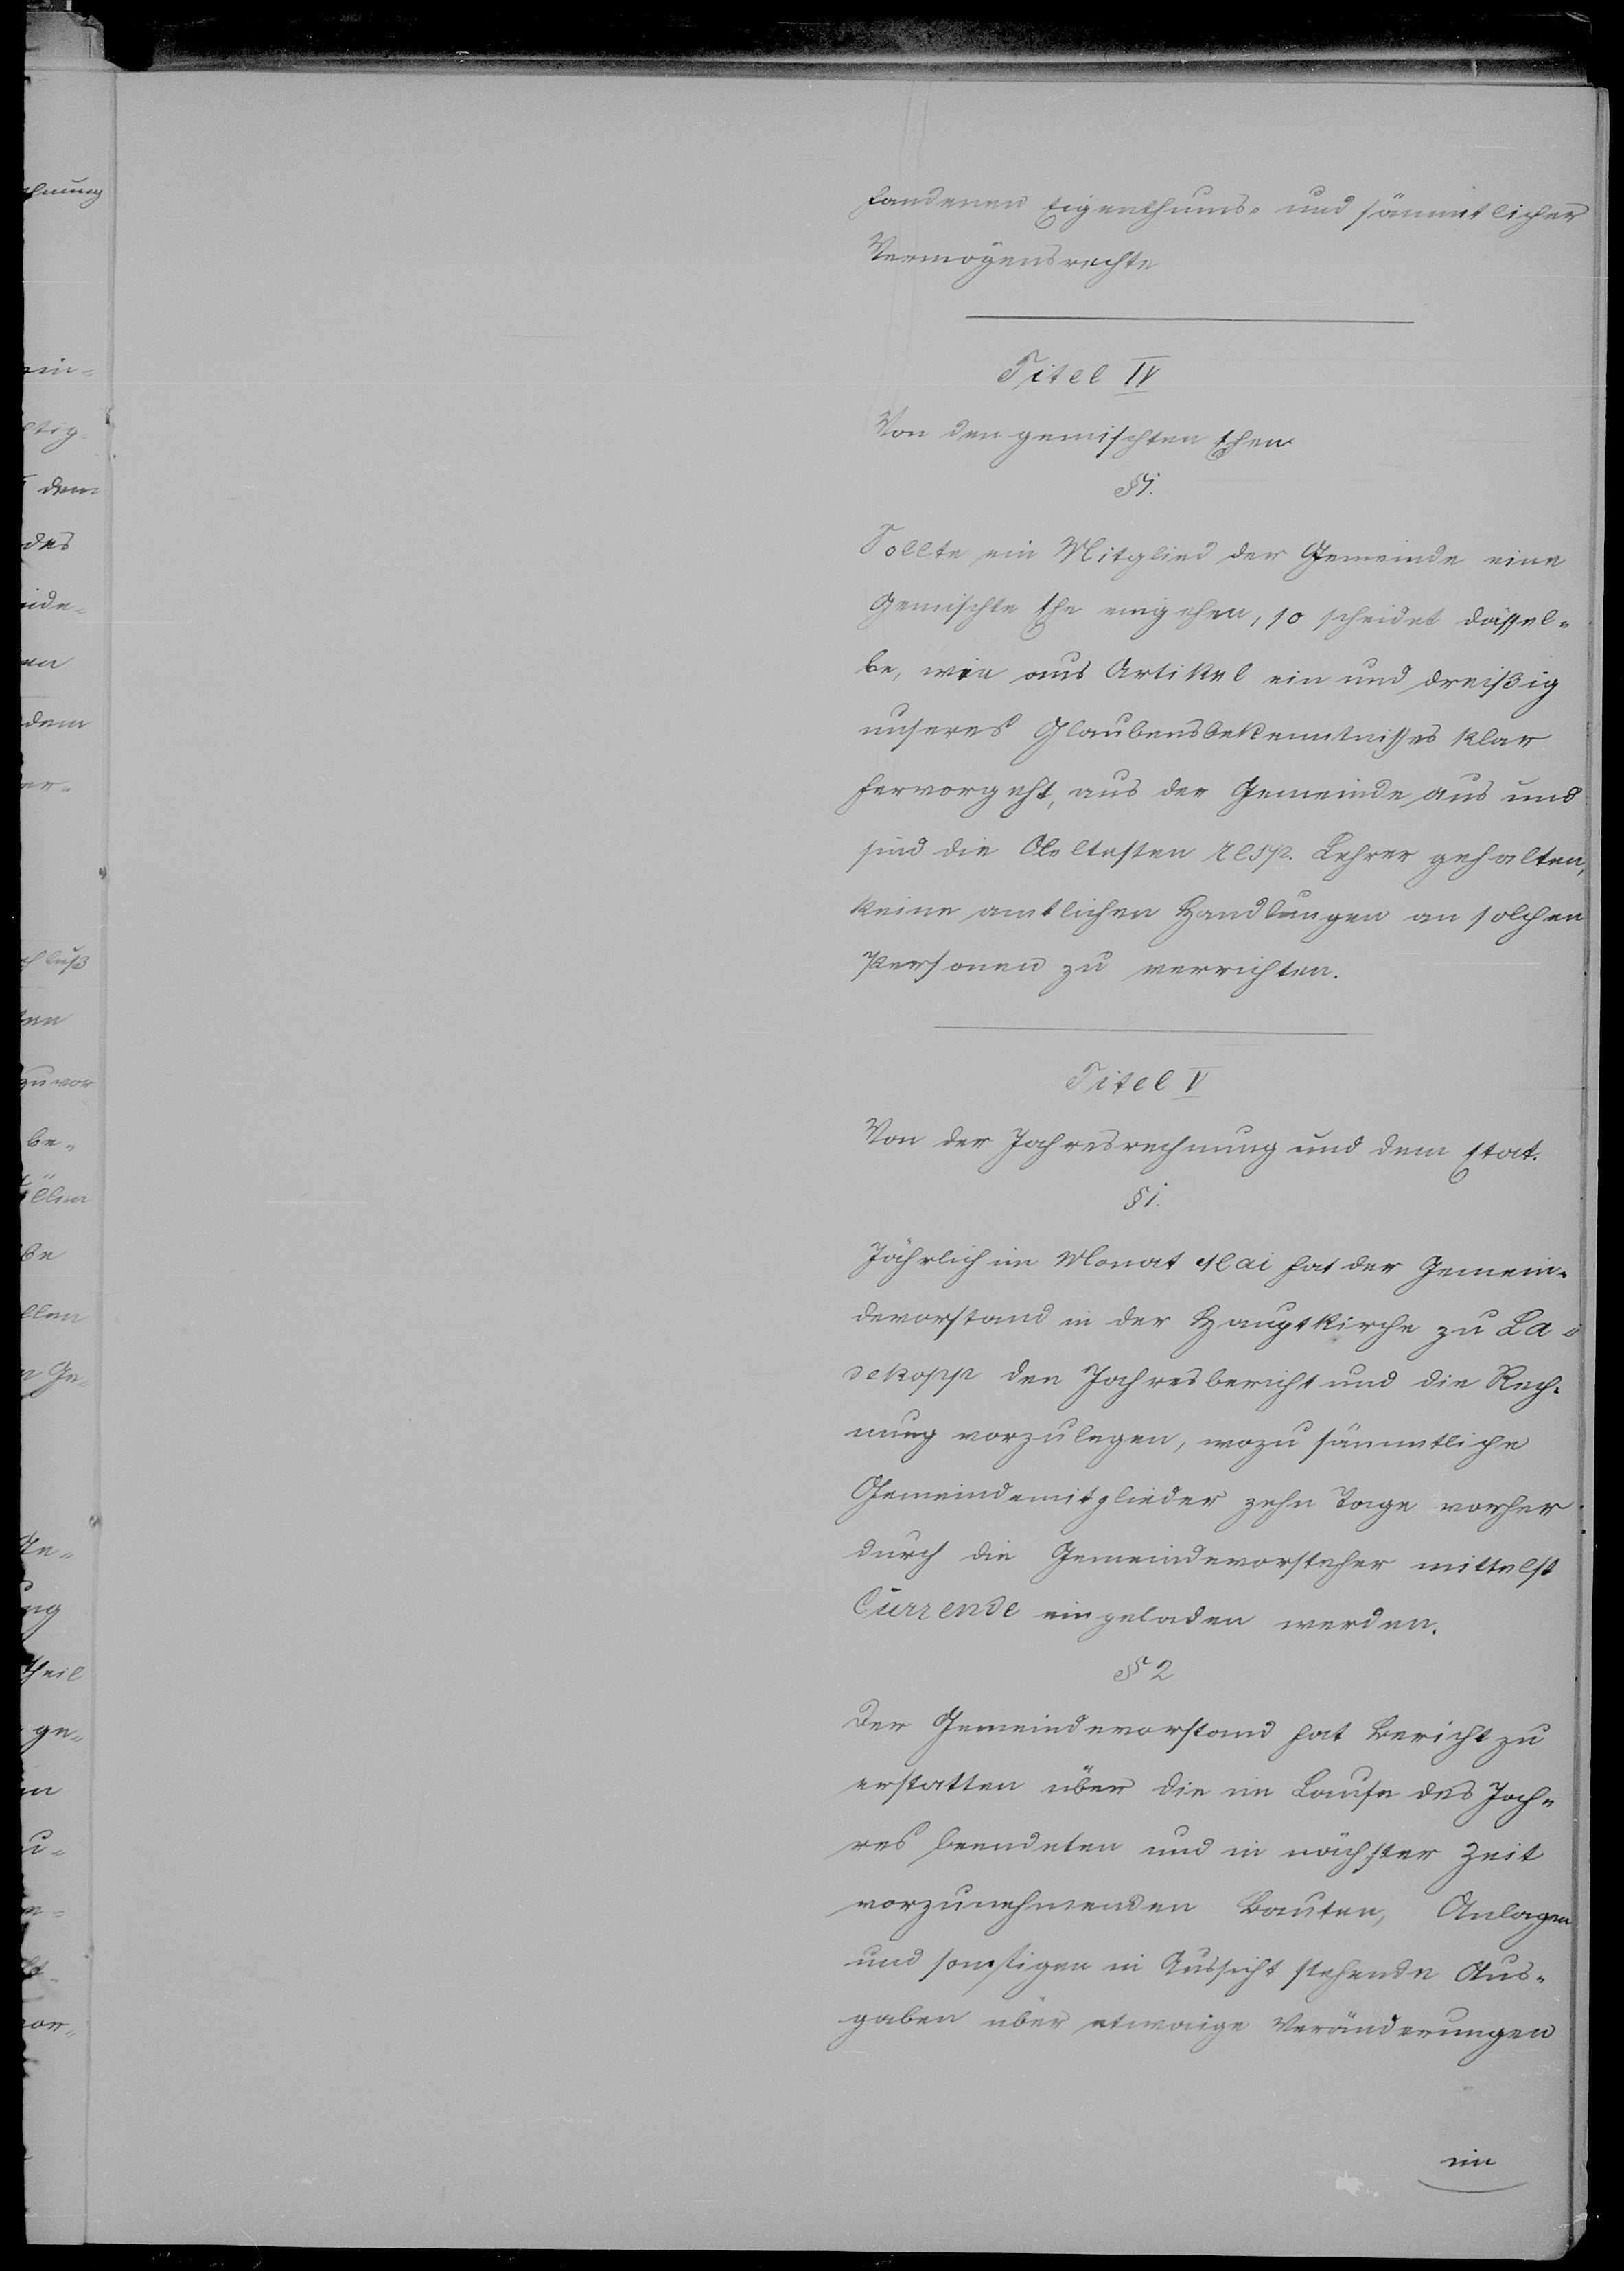 handenen Eigenthums- und sämmtlicher
Vermögensrechte
Titel IV
Von den gemischten Ehen
§1.
Sollte ein Mitglied der Gemeinde eine
gemischte Ehe eingehen, so scheidet dassel-
be, wie aus Artikel ein und dreißig
unseres Glaubensbekenntnisses klar
hervorgeht, aus der Gemeinde aus und
sind die Aeltesten resp. Lehrer gehalten,
keine amtlichen Handlungen an solchen
Personen zu verrichten.
Titel V
Von der Jahresrechnung und dem Etat.
§1.
Jährlich im Monat Mai hat der Gemein-
devorstand in der Hauptkirche zu La-
dekopp den Jahresbericht und die Rech-
nung vorzulegen, wozu sämmtliche
Gemeindemitglieder zehn Tage vorher
durch die Gemeindevorsteher mittelst
Currende eingeladen werden.
§2
Der Gemeindevorstand hat Bericht zu
erstatten über die im Laufe des Jah-
res beendeten und in nächster Zeit
vorzunehmenden Bauten, Anlagen
und sonstigen in Aussicht stehende Aus-
gaben über etwaige Veränderungen
im